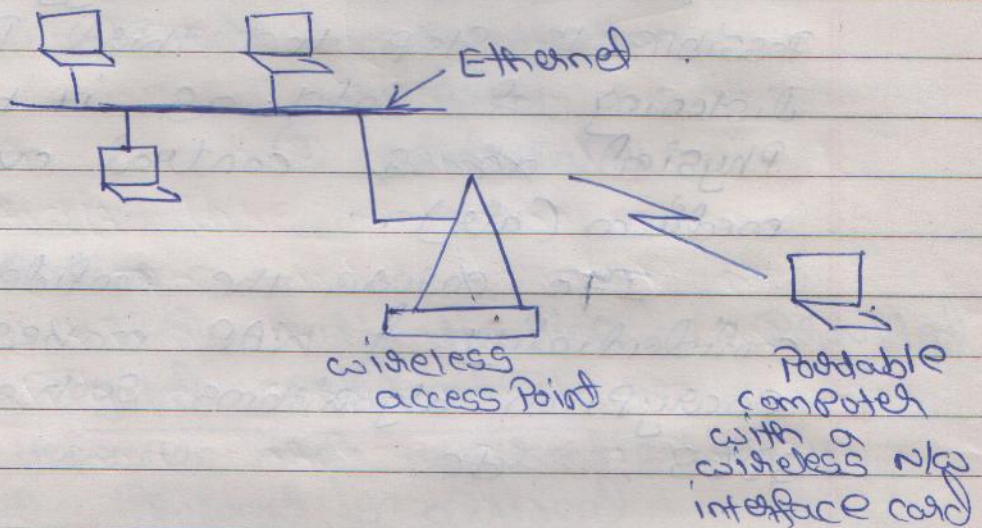 Ethernet
wireless
access Point
Portable
computer
with a
wireless N/W
interface card